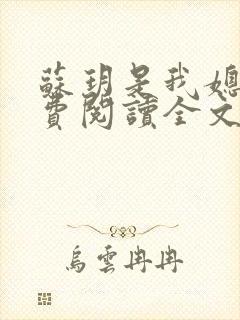 蘇玥是我媳
費閱讀全文
烏雲冉冉